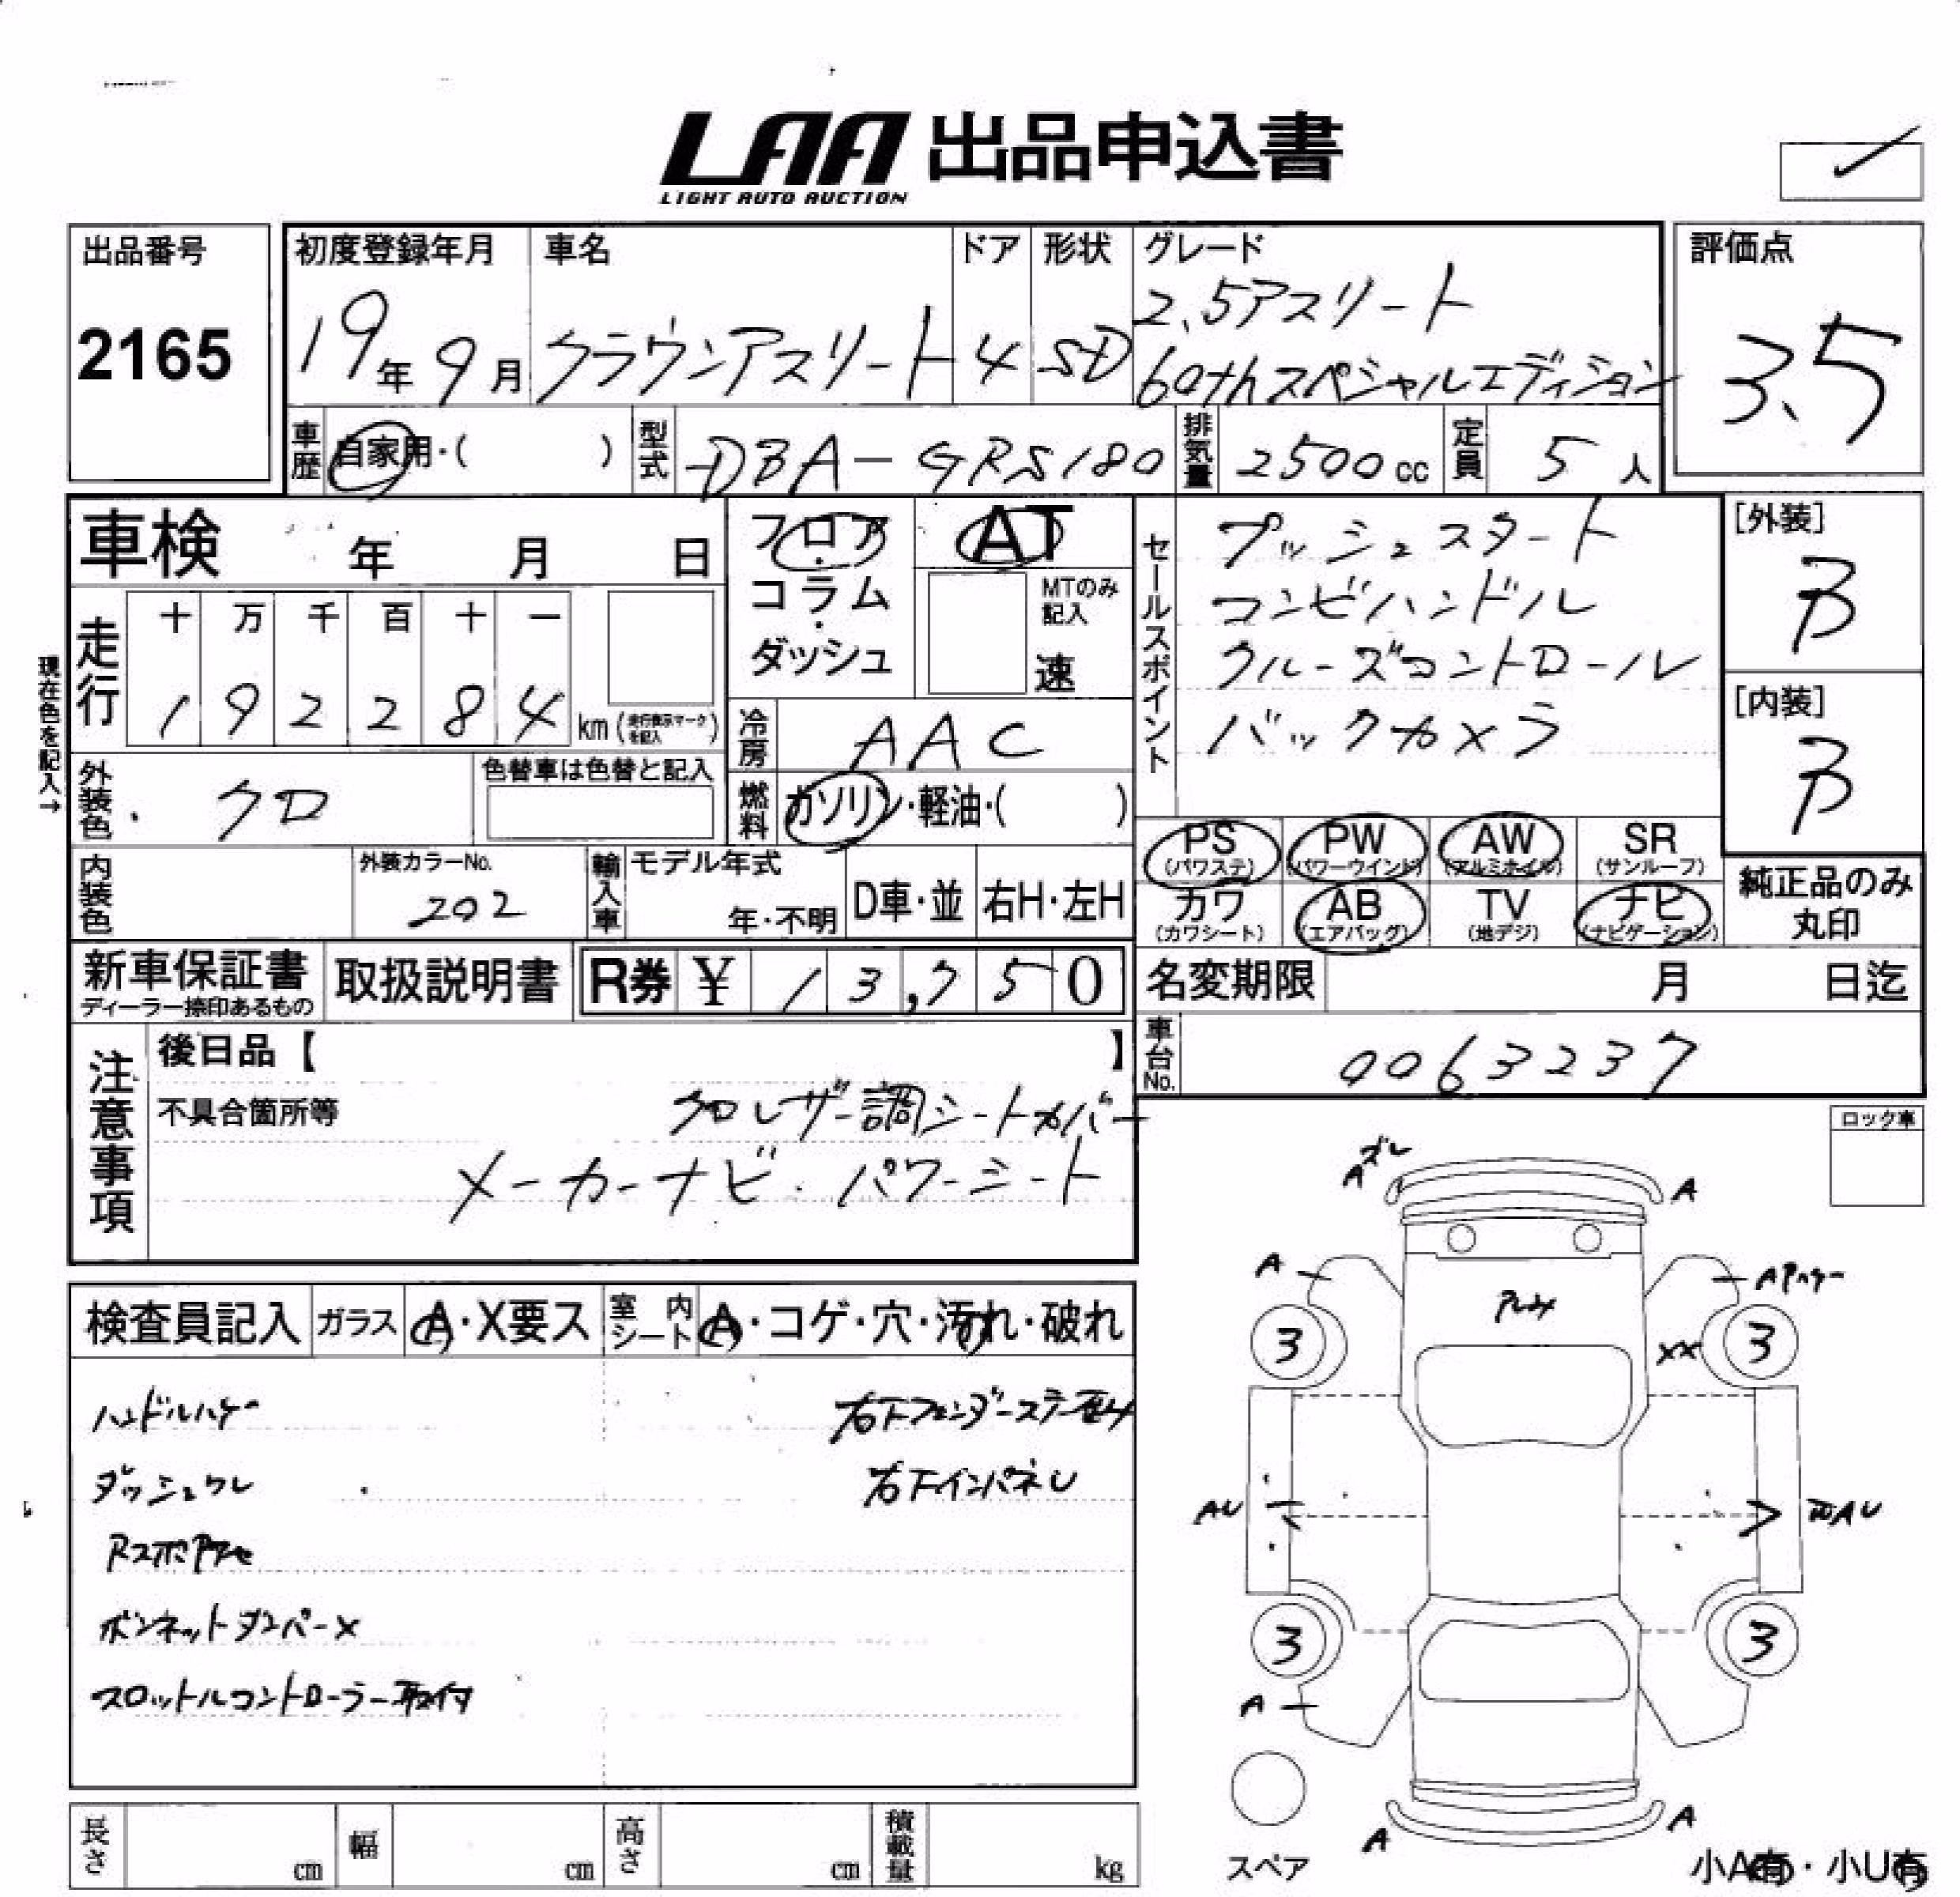 LAA 出品申込書
LIGHT AUTO AUCTION
出品番号
2165
初度登録年月
19年9月
車名
クラウンアスリート
ドア
4
形状
SD
グレード
2.5アスリート
60thスペシャルエディション
評価点
3.5
車歴
自家用・( )
型式
DBA-GRS180
排気量
2500cc
定員
5人
車検 年 月 日
フロア
・
コラム
・
ダッシュ
AT
MTのみ
記入
速
セールスポイント
プッシュスタート
コンビハンドル
クルーズコントロール
バックカメラ
[外装]
B
[内装]
B
現在色を記入→
走行
十 万 千 百 十 一
1 9 2 2 8 4 km (走行表示マークを記入)
冷房
AAC
外装色
クロ
色替車は色替と記入
燃料
ガソリン・軽油・( )
PS
(パワステ)
PW
(パワーウインド)
AW
(アルミホイル)
SR
(サンルーフ)
カワ
(カワシート)
AB
(エアバッグ)
TV
(地デジ)
ナビ
(ナビゲーション)
純正品のみ
丸印
内装色
外装カラーNo.
202
輸入車
モデル年式
年・不明
D車・並
右H・左H
新車保証書
ディーラー捺印あるもの
取扱説明書
R券 ¥ 13,750
名変期限 月 日迄
車台No.
0063237
注意事項
後日品【 】
不具合箇所等
クロレザー調シートカバー
メーカーナビ. パワーシート
ロック車
ズレ
A
A
A
Aハゲー
3
3
XX
AU
AU
3
3
A
A
A
スペア
小A有・小U有
検査員記入
ガラス
A・X要ス
室内シート
A・コゲ・穴・汚れ・破れ
ハンドルハゲー
右下フェンダーステー歪み
ダッシュワレ
右下インパネU
ボンネットダンパーX
スロットルコントローラー取付
長さ cm
幅 cm
高さ cm
積載量 kg